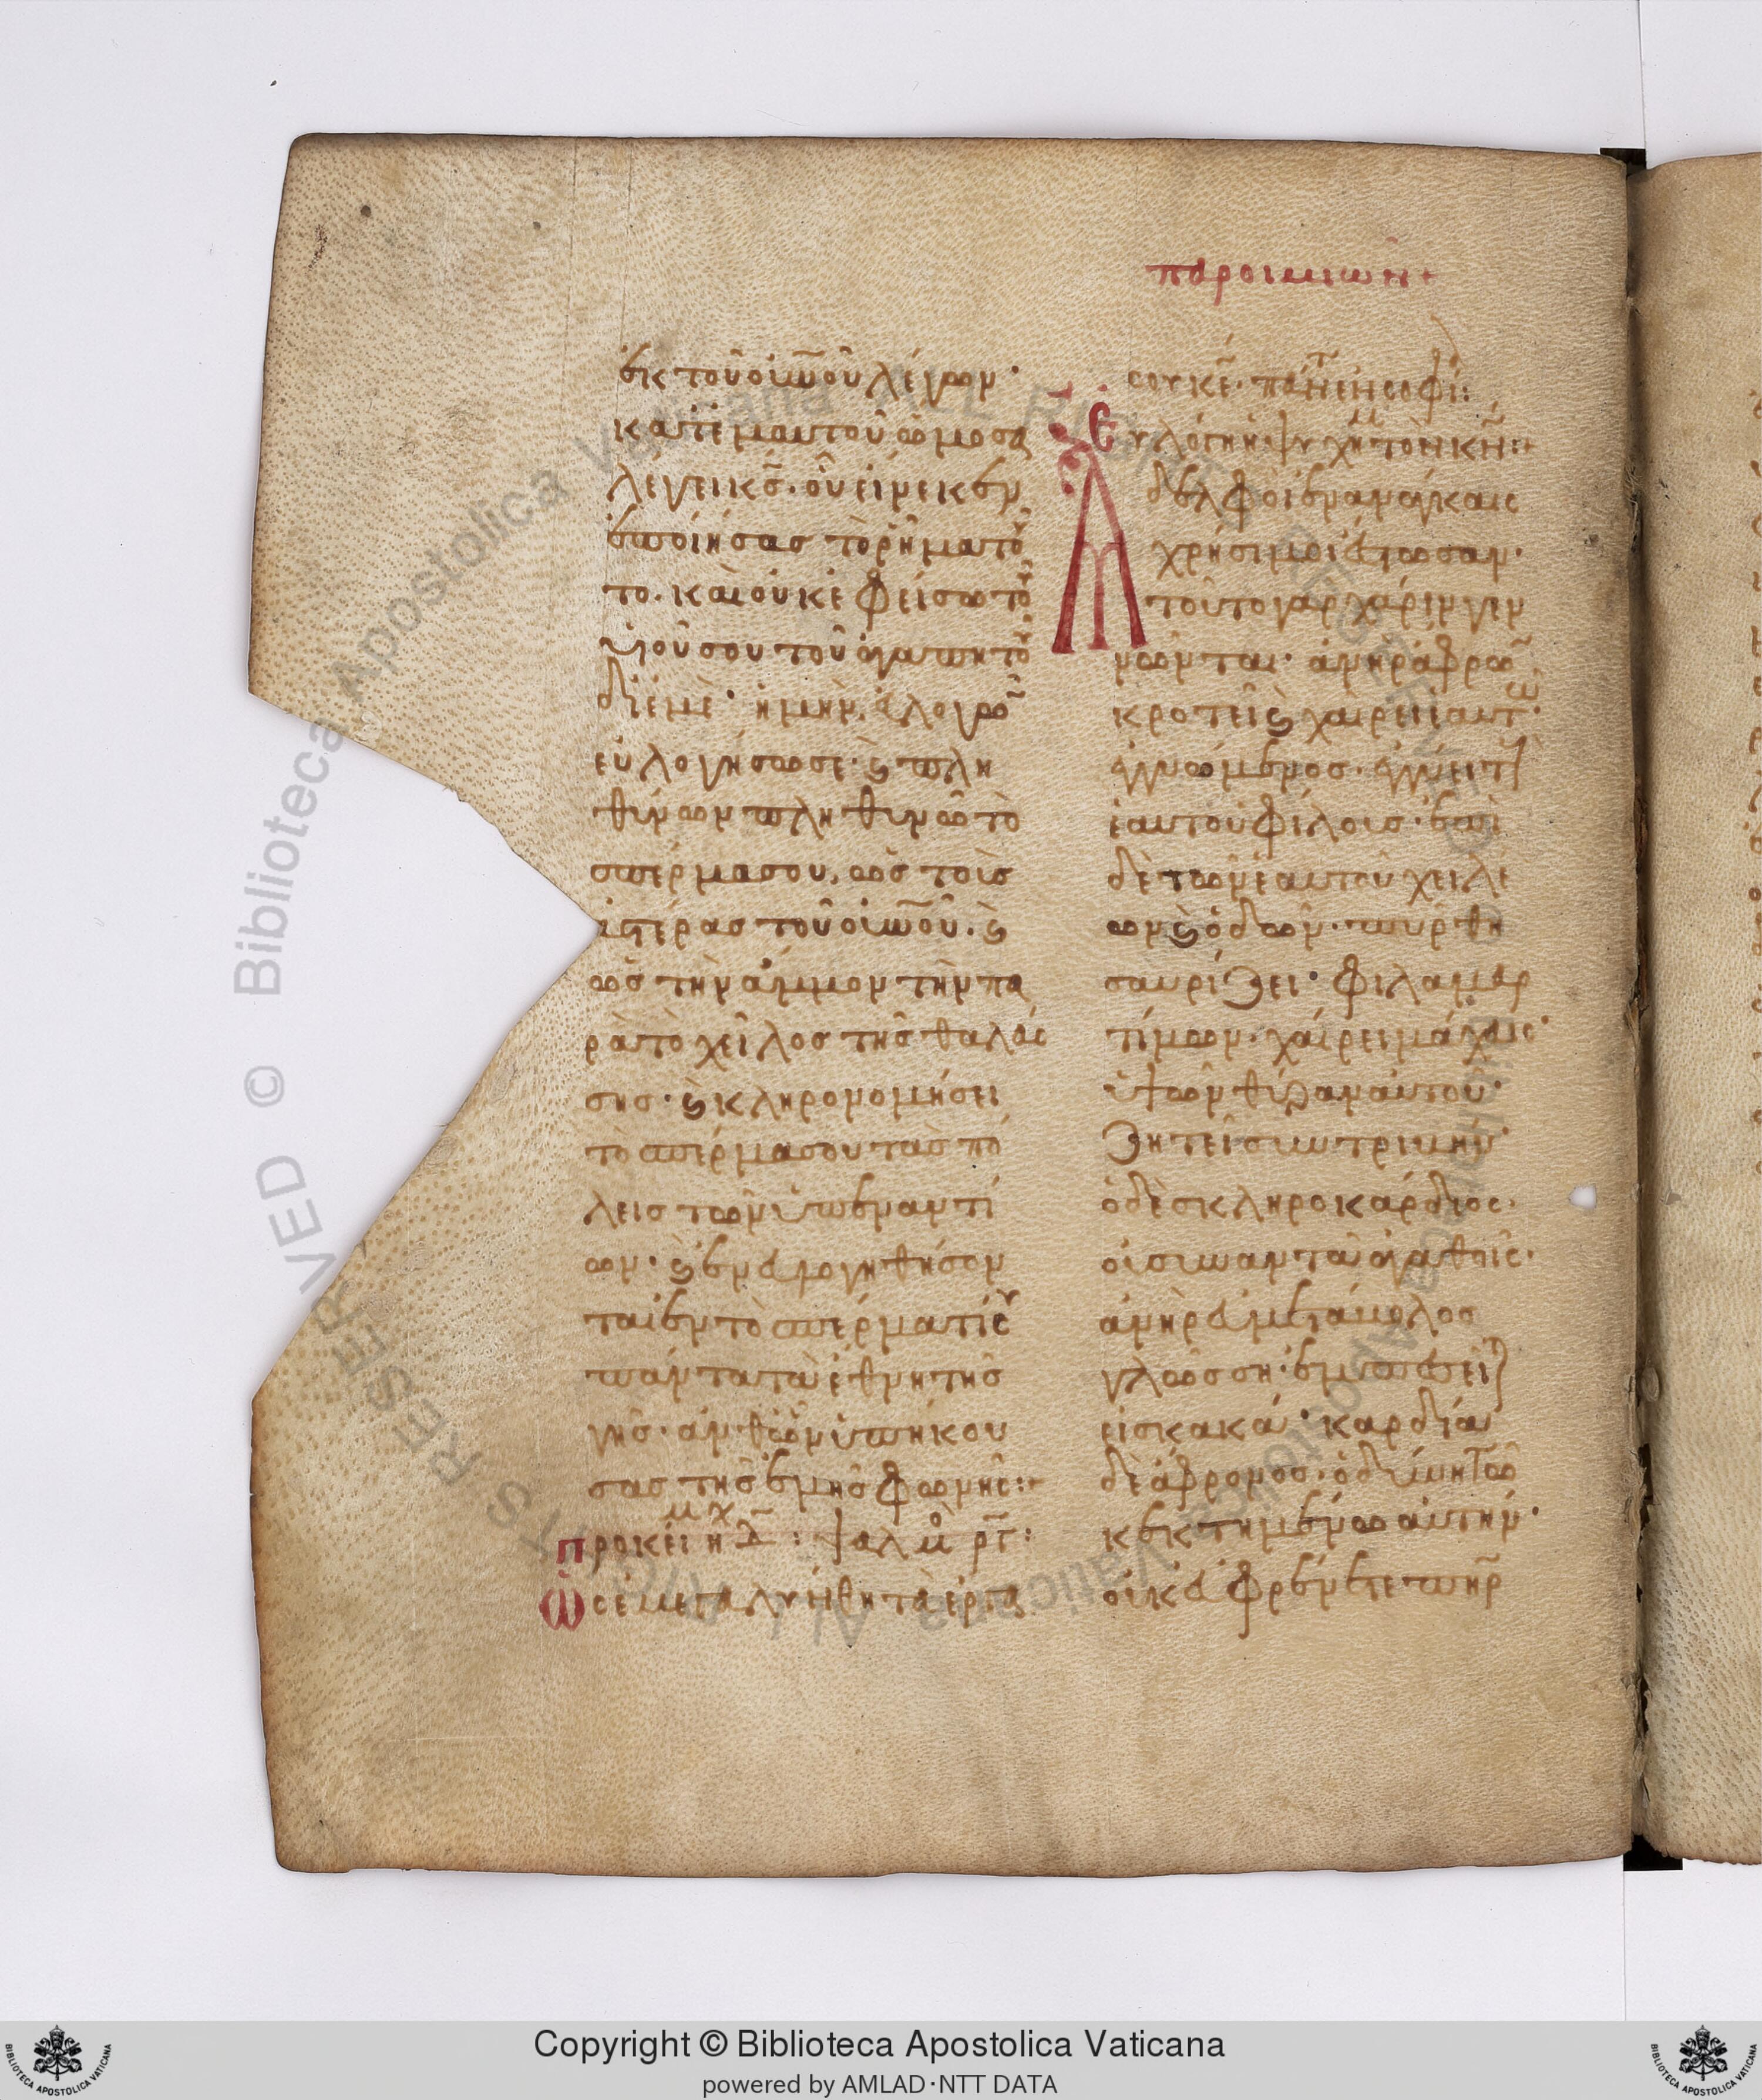 παροιμιων+
ἐκ τοῦ οὐ̅νοῦ λέγων·
κατ' ἐμαυτοῦ ὤμοσα
λέγει κ̅ς̅· οὗ εἵνεκεν
ἐποίησας τὸ ρῆμα τοῦ
το· καὶ οὐκ ἐφείσω τοῦ
υἱοῦ σου τοῦ ἀγαπητοῦ
δι' ἐμὲ· ἠ μὴν εὐλογῶ̅
εὐλογήσω σε· ϗ πλη
θύνων πληθυνῶ τὸ
σπέρμα σου, ὡς τοὺς
ἀστέρας τοῦ οὐ̅νοῦ· ϗ
ὡς τὴν ἄμμον τὴν πα
ρὰ τὸ χεῖλος τῆς θαλάσ
σης· ϗ κληρονομήσει
τὸ σπέρμα σου τὰς πό
λεις τῶν ὑπεναντί
ων· ϗ ἐνευλογηθήσον
ται ἐν τῶ σπέρματί σου
πάντα τὰ ἔθνη τῆς
γῆς· ἀνθ' ὧν ὑπήκου
σας τῆς ἐμῆς φωνῆς:+
προκεί μ ηχ δ̅: ψαλμο ρ̅γ̅:
Ὡς ἐμεγαλύνθη τὰ ἔργα
σου κ̅ε̅· πάντα ἐν σοφί:
Εὐλόγη ἡ ψυχή μ τὸν κ̅ν̅:+
Ἀδελφοὶ ἐν ἀνάγκαις
χρήσιμοι ἔστωσαν·
τούτου γὰρ χάριν γεν
νῶνται· ἀνὴρ ἄφρω̅
κροτεῖ ϗ χαίρει ἑαυτ·
ἐγγυώμενος· ἐγγύει τ
ἑαυτοῦ φίλοις· ἐπὶ
δὲ τῶν ἑαυτοῦ χειλέ
ων ϗ ὁδῶν· πῦρ θη
σαυρίζει· φιλαμαρ
τήμων· χαίρει μάχαις·
ὑψῶν θύραν αὐτοῦ·
ζητεῖ συντριβήν·
ὁ δὲ σκληροκάρδιος·
οὐ συναντᾶ ἀγαθοῖς·
ἀνὴρ εὐμετάβολος
γλώσση· ἐμπεσεῖ
εἰς κακά· καρδία
δὲ ἄφρονος· ὀδύνη τῶ
κεκτημένω αὐτήν·
οὐκ εὐφραίνεται πη̅ρ